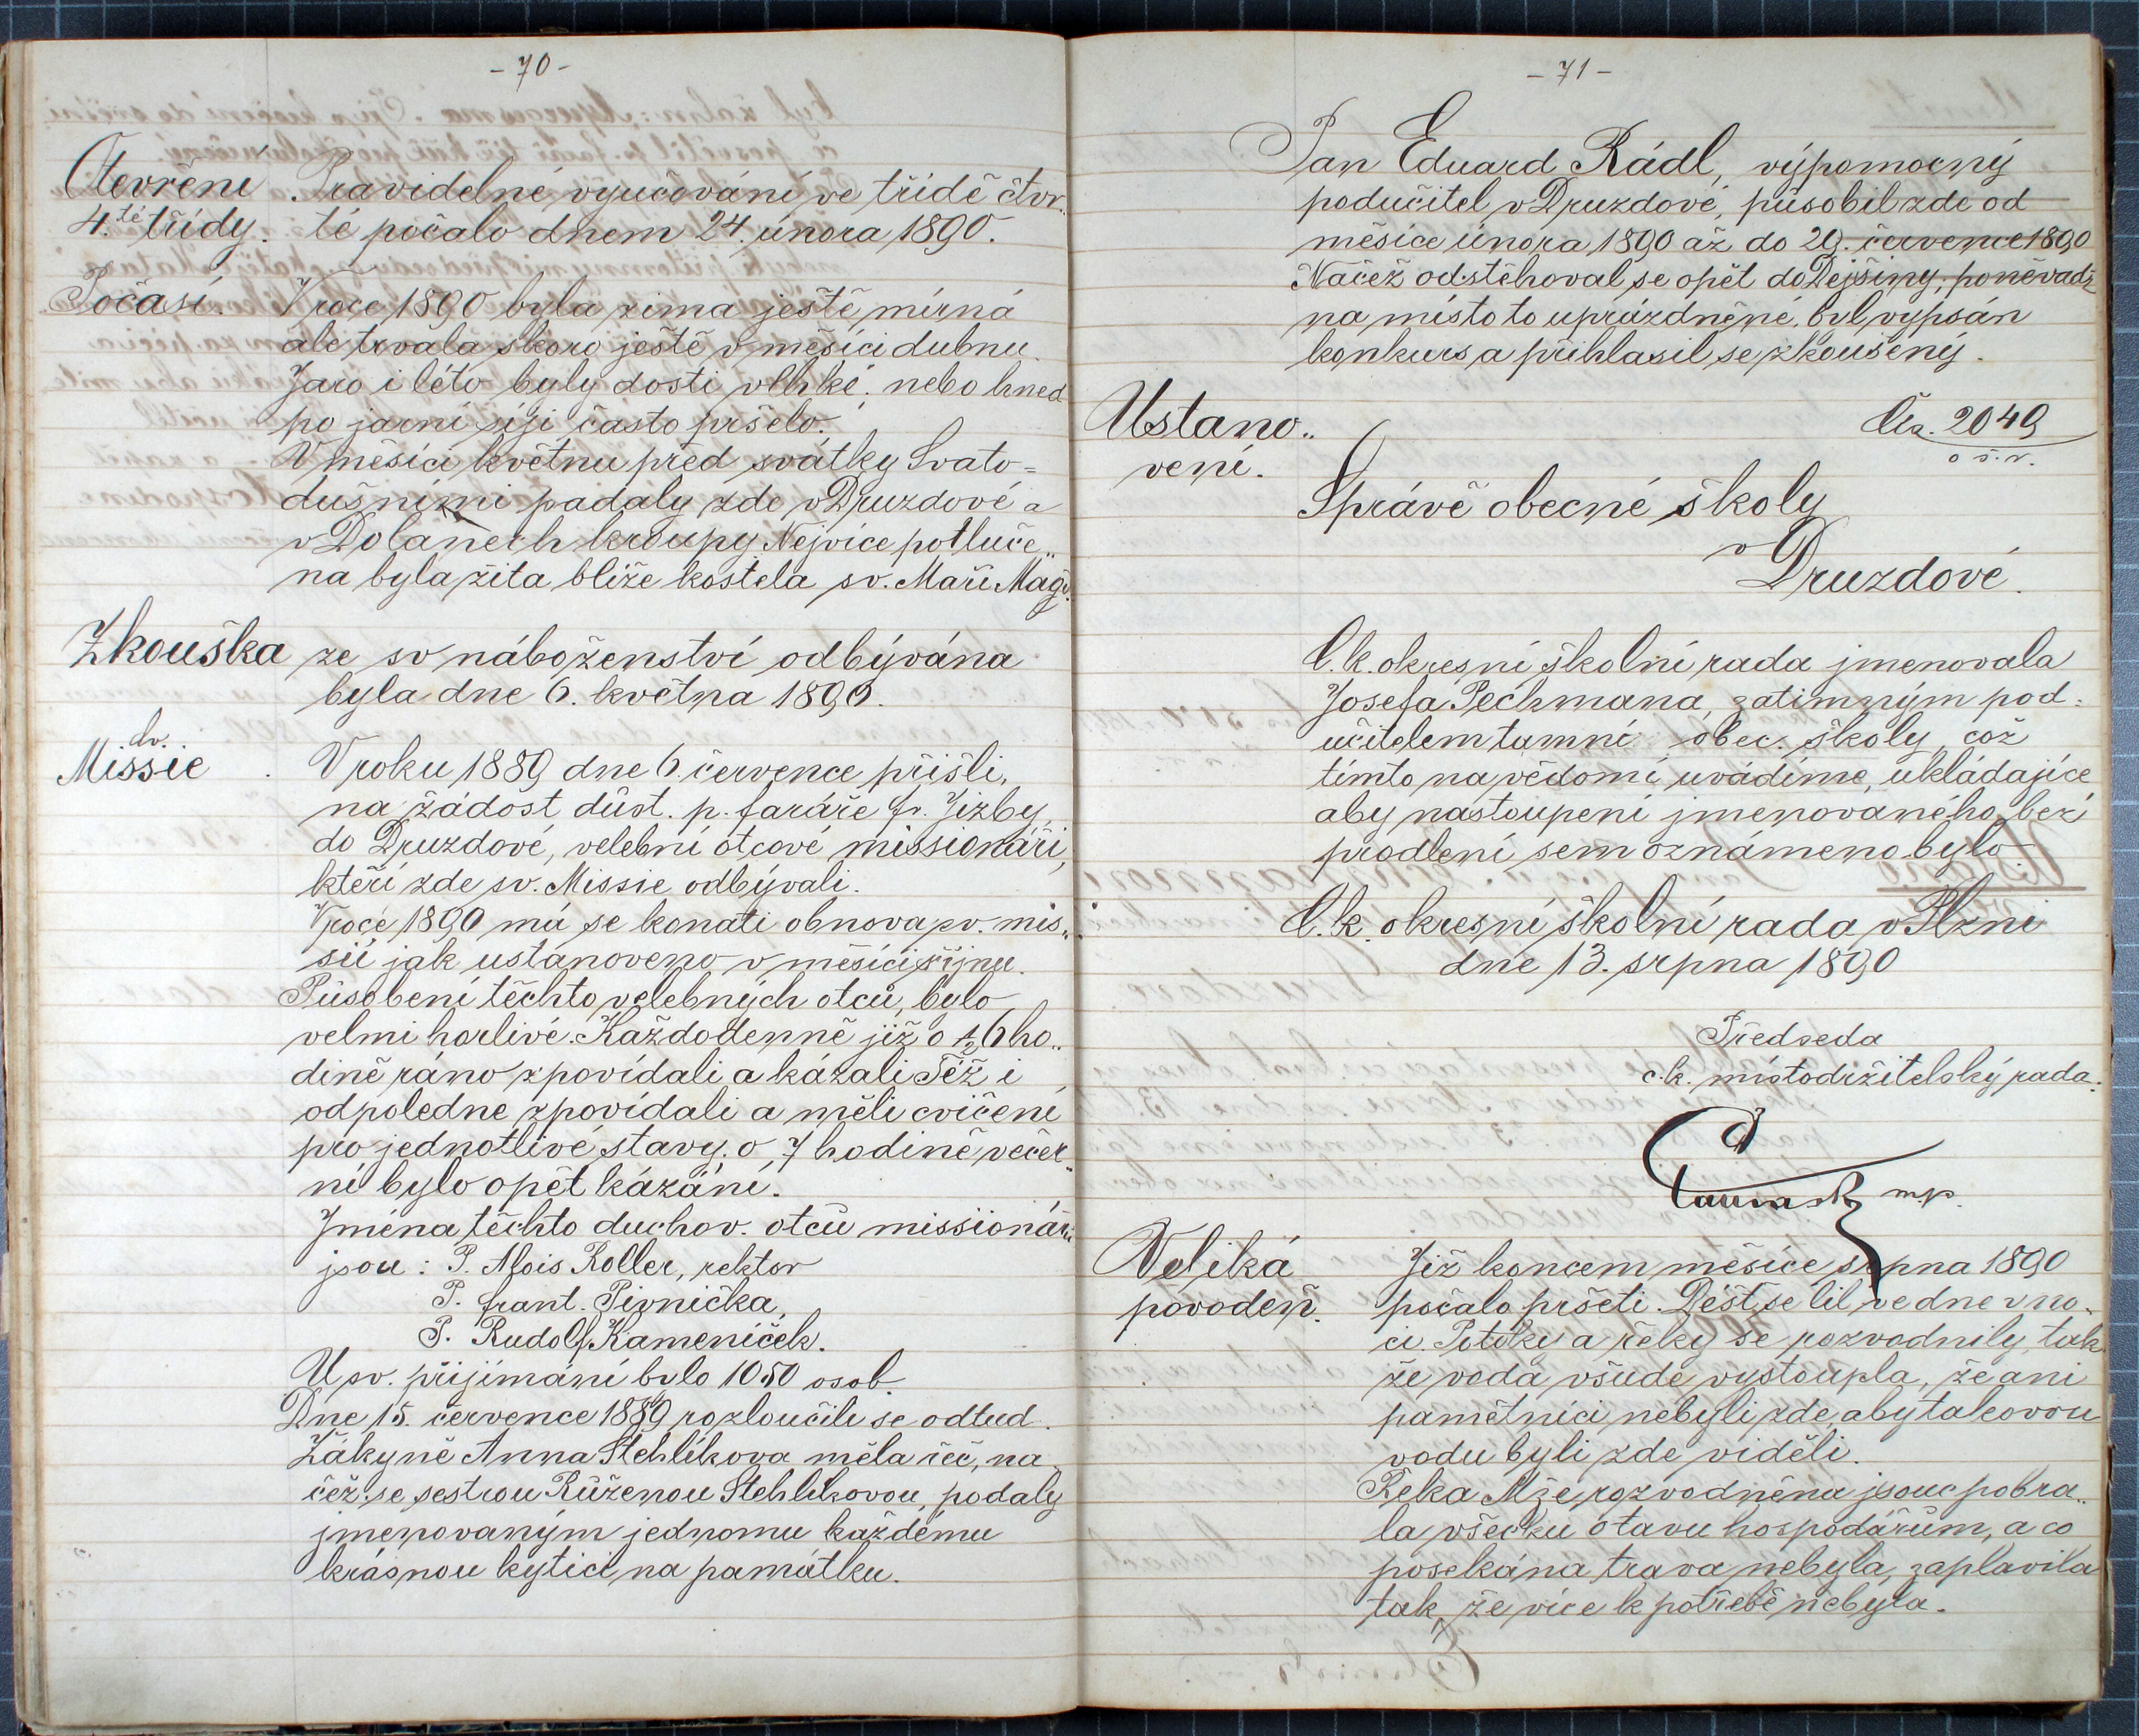 - 70 -
Otevření Pravidelné vyučování ve třídě čtvr„
4.té třídy. té počalo dnem 24. února 1890.
Počasí. V roce 1890 byla zima ještě mírná
ale trvala skoro ještě v měsíci dubnu.
Jaro i léto byly dosti vlhké; nebo hned
po jarní siji často pršelo.
V měsíci květnu před svátky Svato=
dušními padaly zde v Druzdové a
v Dolanech kroupy. Nejvíce potluče„
na byla žita blíže kostela sv. Maří Magd.
Zkouška ze sv náboženství odbývána
byla dne 6. května 1890.
sv.
Missie. V roku 1889 dne 6. července přišli,
na žádost důst. p. faráře fr. Jizby,
do Druzdové, velební otcové missionáři,
kteří zde sv. Missie odbývali.
V roce 1890 má se konati obnova sv. mis„
sií jak ustanoveno v měsíci říjnu.
Působení těchto velebných otců, bylo
velmi horlivé. Každodenně již o ½6 ho„
dině ráno zpovídali a kázali Též i
odpoledne zpovídali a měli cvičení
pro jednotlivé stavy. o 7 hodině večer„
ní bylo opět kázání.
Jména těchto duchov. otců missionářů
jsou: P. Alois Roller, rektor
P. frant. Pivnička,
P. Rudolf Kameníček.
U sv. přijímání bylo 1050 osob.
Dne 15. července 1889 rozloučili se odtud.
Žákyně Anna Stehlíkova měla řeč, na„
čež se sestrou Růženou Stehlíkovou, podaly
jmenovaným jednomu každému
krásnou kytici na památku.
- 71 -
Pan Eduard Rádl, výpomocný
podučitel v Druzdové, působil zde od
měsíce února 1890 až do 29. července 1890
Načež odstěhoval se opět do Dejšiny, poněvadž
na místo to uprázdněné, byl vypsán
konkurs a přihlasil se zkoušený.
Ustano„
vení.
Čís. 2049
o š. r.
Správě obecné školy
v
Druzdové.
C. k. okresní školní rada jmenovala
Josefa Pechmana, zatimným pod=
učitelem tamní obec. školy, což
tímto na vědomí uvádíme, ukládajíce
aby nastoupení jmenovaného bez
prodlení sem oznámeno bylo
C. k. okresní školní rada v Plzni
dne 13. srpna 1890
Předseda
c. k. místodržitelský rada.
m.p.
Veliká Již koncem měsíce srpna 1890
povodeň. počalo pršeti. Déšt se lil ve dne v no„
ci. Potoky a řeky se rozvodnily, tak
že voda všude vystoupla, že ani
pamětníci nebyli zde, aby takovou
vodu byli zde viděli.
Řeka Mže rozvodněna jsouc pobra„
la všecku otavu hospodářům, a co
posekána trava nebyla, zaplavila
tak, že více k potřebě nebyla.